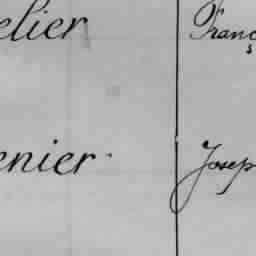 elier Franç
enier Josep